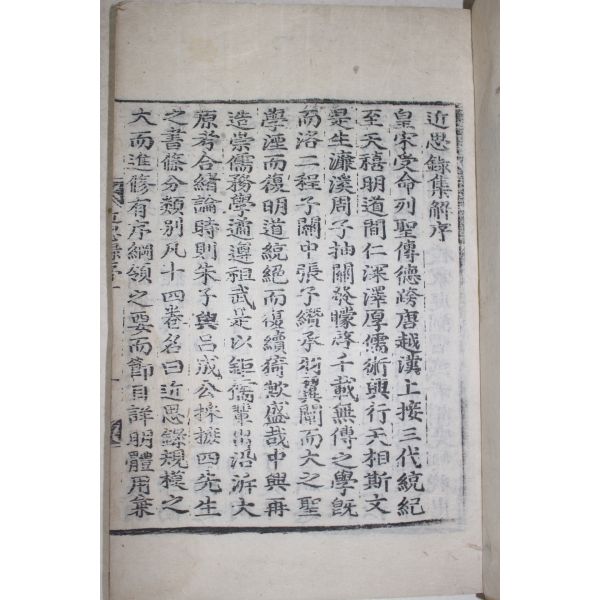 近思錄集解序
皇宋受命列聖傳德跨唐越漢上接三代統紀
至天禧明道間仁深澤厚儒術興行天相斯文
是生濂溪周子抽關發矇啓千載無傳之學旣
而洛二程子關中張子纘承羽翼闡而大之聖
學湮而復明道統絕而復續猗歟盛哉中興再
造崇儒務學遹遵祖武是以鉅儒輩出沿泝大
原考合緒論時則朱子與呂成公採摭四先生
之書條分類別凡十四卷名曰近思錄規模之
大而進修有序綱領之要而節目詳明體用兼